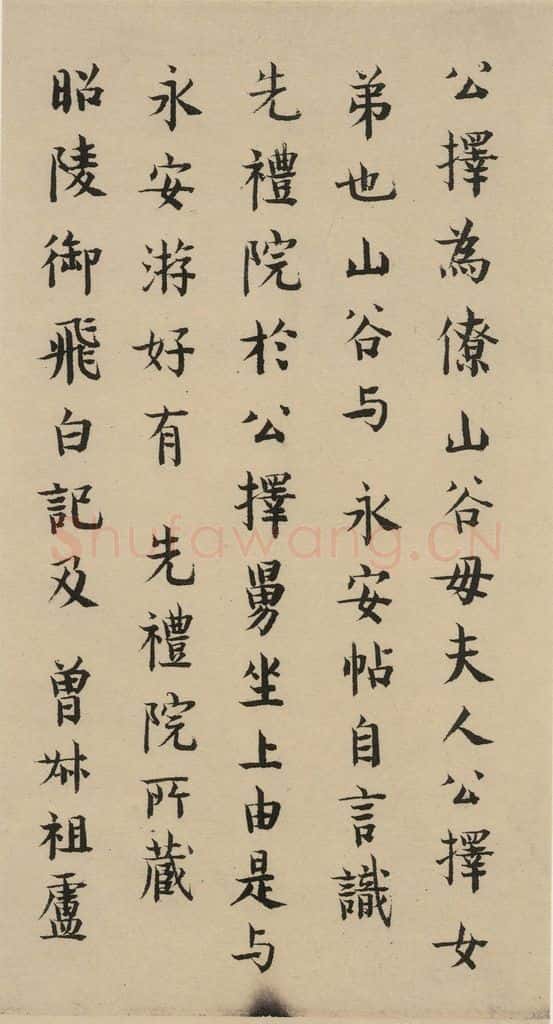 公擇為僚山谷母夫人公擇女
弟也山谷与 永安帖自言識
先禮院於公擇舅坐上由是与
永安游好有 先禮院所藏
昭陵御飛白記及 曾叔祖盧
Shufawang.CN